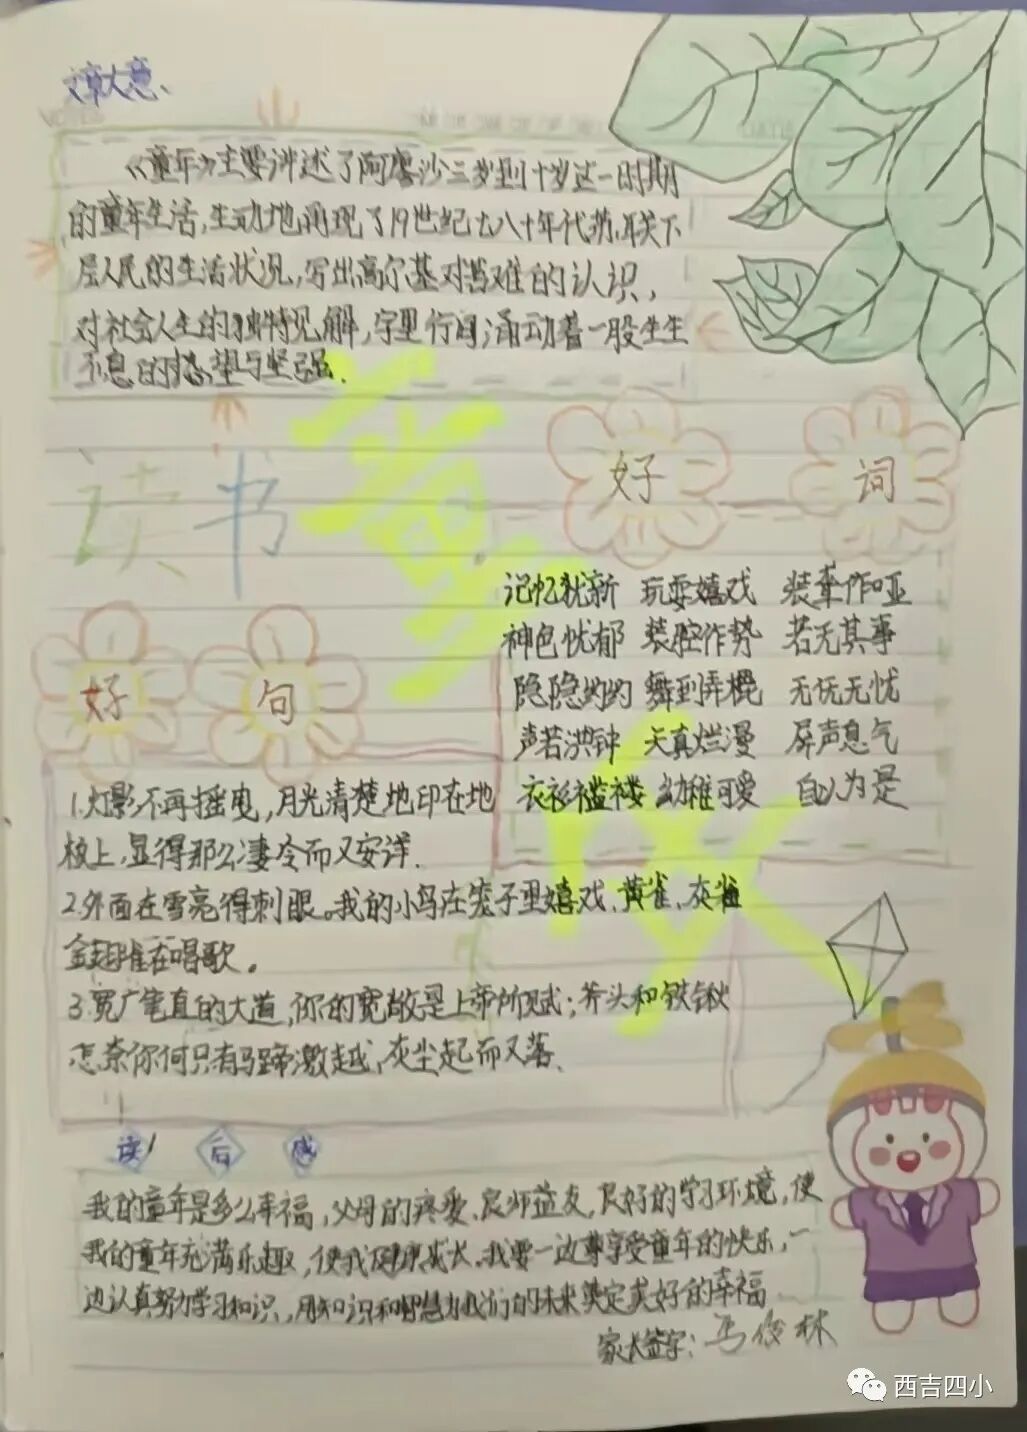 文章大意、
《童年》主要讲述了阿廖沙三岁到十岁这一时期
的童年生活,生动地再现了19世纪七八十年代苏联下
层人民的生活状况,写出高尔基对苦难的认识,
对社会人生的独特见解,字里行间涌动着一股生生
不息的热望与坚强.
读书
童年
好词
记忆犹新 玩耍嬉戏 装聋作哑
神色忧郁 装腔作势 若无其事
隐隐约约 舞剑弄棍 无忧无虑
声若洪钟 天真烂漫 屏声息气
衣衫褴褛 幼稚可爱 自以为是
好句
1.灯影不再摇曳,月光清楚地印在地
板上,显得那么凄冷而又安详.
2.外面在雪亮得刺眼。我的小鸟在笼子里嬉戏、黄雀、灰雀
金翅雀在唱歌。
3.宽广笔直的大道,你的宽敞是上帝所赋;斧头和铁锹
怎奈你何只有马蹄激越,灰尘起而又落、
读后感
我的童年是多么幸福,父母的疼爱、良师益友,良好的学习环境,使
我的童年充满乐趣,使我健康成长.我要一边尊享受童年的快乐,一
边认真努力学习知识,用知识和智慧为我们的未来奠定美好的幸福
家长签字:马俊林
西吉四小